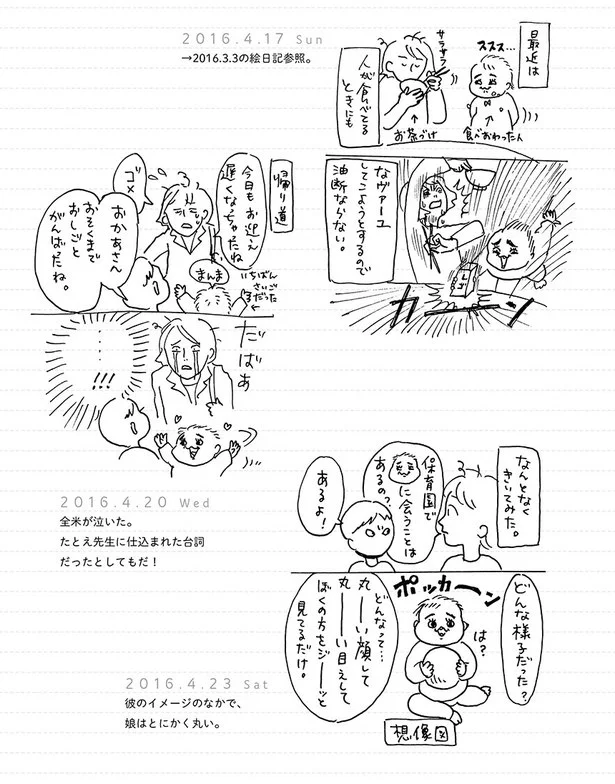 2016.4.17 Sun
→2016.3.3の絵日記参照。
最近は
ススス…
食べおわった人
サラサラ
お茶づけ
人が食べてる
ときにも
なヴァーユ
してこようとするので
油断ならない。
帰り道
今日もお迎え
遅くなっちゃったね
ゴメ
まんま
いちばん
さいご
だった
おかあさん
おそくまで
おしごと
がんばったね。
だばあ
…
!!!
2016.4.20 Wed
全米が泣いた。
たとえ先生に仕込まれた台詞
だったとしてもだ！
なんとなく
きいてみた。
保育園で
に会うことは
あるの？
あるよ！
どんな様子だった？
ポッカーン
は？
どんなって…
丸ーい顔して
丸ーい目えして
ぼくの方をジーッと
見てるだけ。
想像図
2016.4.23 Sat
彼のイメージのなかで、
娘はとにかく丸い。